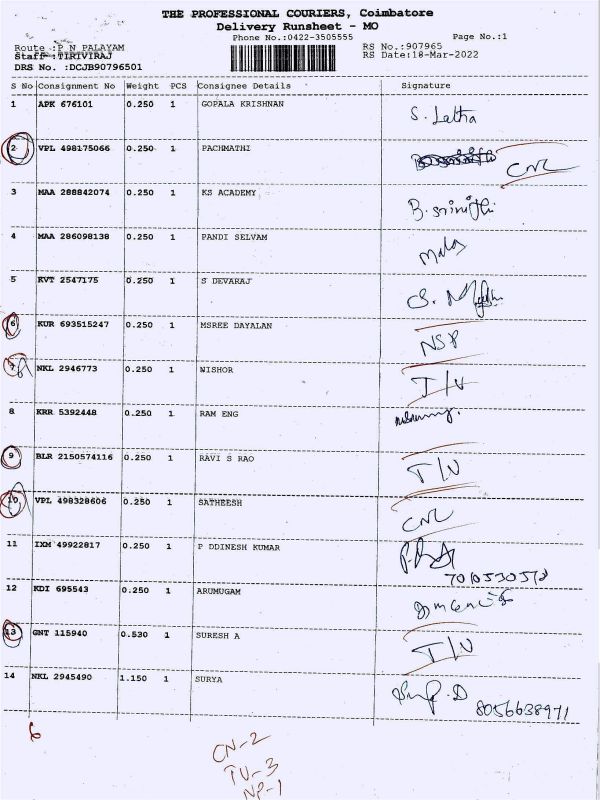 THE PROFESSIONAL COURIERS, Coimbatore
Delivery Runsheet - MO
Phone No.:0422-3505555 Page No.:1
Route :P N PALAYAM RS No.:907965
Staff :TIRIVIRAJ RS Date:18-Mar-2022
DRS No. :DCJB90796501
S No Consignment No Weight PCS Consignee Details Signature
1 APK 676101 0.250 1 GOPALA KRISHNAN S. Latha
2 VPL 498175066 0.250 1 PACHMATHI CNL
3 MAA 288842074 0.250 1 KS ACADEMY B. srinithi
4 MAA 286098138 0.250 1 PANDI SELVAM Mala
5 KVT 2547175 0.250 1 S DEVARAJ
6 KUR 693515247 0.250 1 MSREE DAYALAN NSP
7 NKL 2946773 0.250 1 NISHOR T/U
8 KRR 5392448 0.250 1 RAM ENG
9 BLR 2150574116 0.250 1 RAVI S RAO T/U
10 VPL 498328606 0.250 1 SATHEESH CNL
11 IXM 49922817 0.250 1 P DDINESH KUMAR
12 KDI 695543 0.250 1 ARUMUGAM
13 GNT 115940 0.530 1 SURESH A T/U
14 NKL 2945490 1.150 1 SURYA 8056638971
6 CN-2
TU-3
NP-1